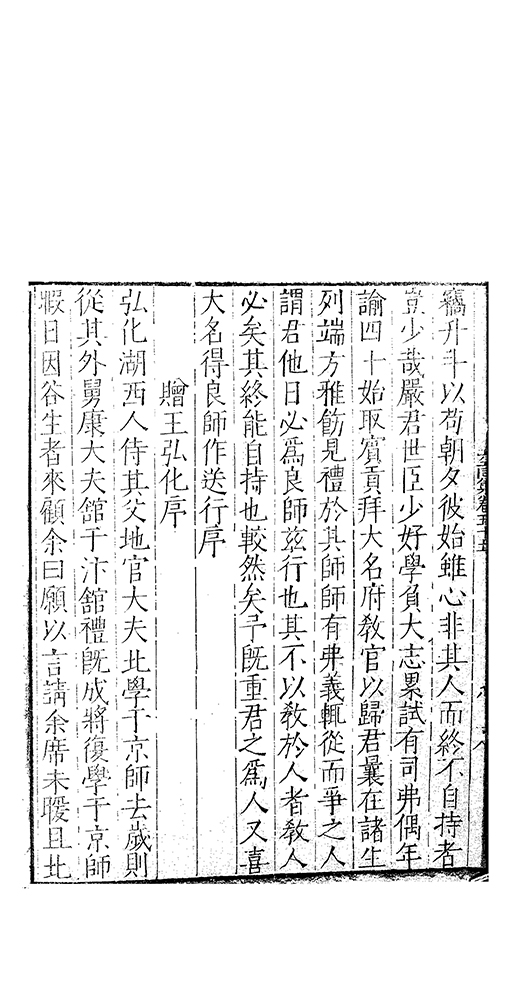 竊升斗以苟朝夕彼始雖心非其人而終不自持者
豈少哉嚴君世臣少好學負大志累試有司弗偶年
諭四十始取賓貢拜大名府教官以歸君曩在諸生
列端方雅飭見禮於其師師有弗義輒從而爭之人
謂君他日必爲良師兹行也其不以教於人者教人
必矣其終能自持也較然矣予旣重君之爲人又喜
大名得良師作送行序
贈王弘化序
弘化湖西人侍其父地官大夫北學于京師去歲則
從其外舅康大夫舘于汴舘禮旣成將復學于京師
暇日因谷生者來顧余曰願以言請余席未暖且北